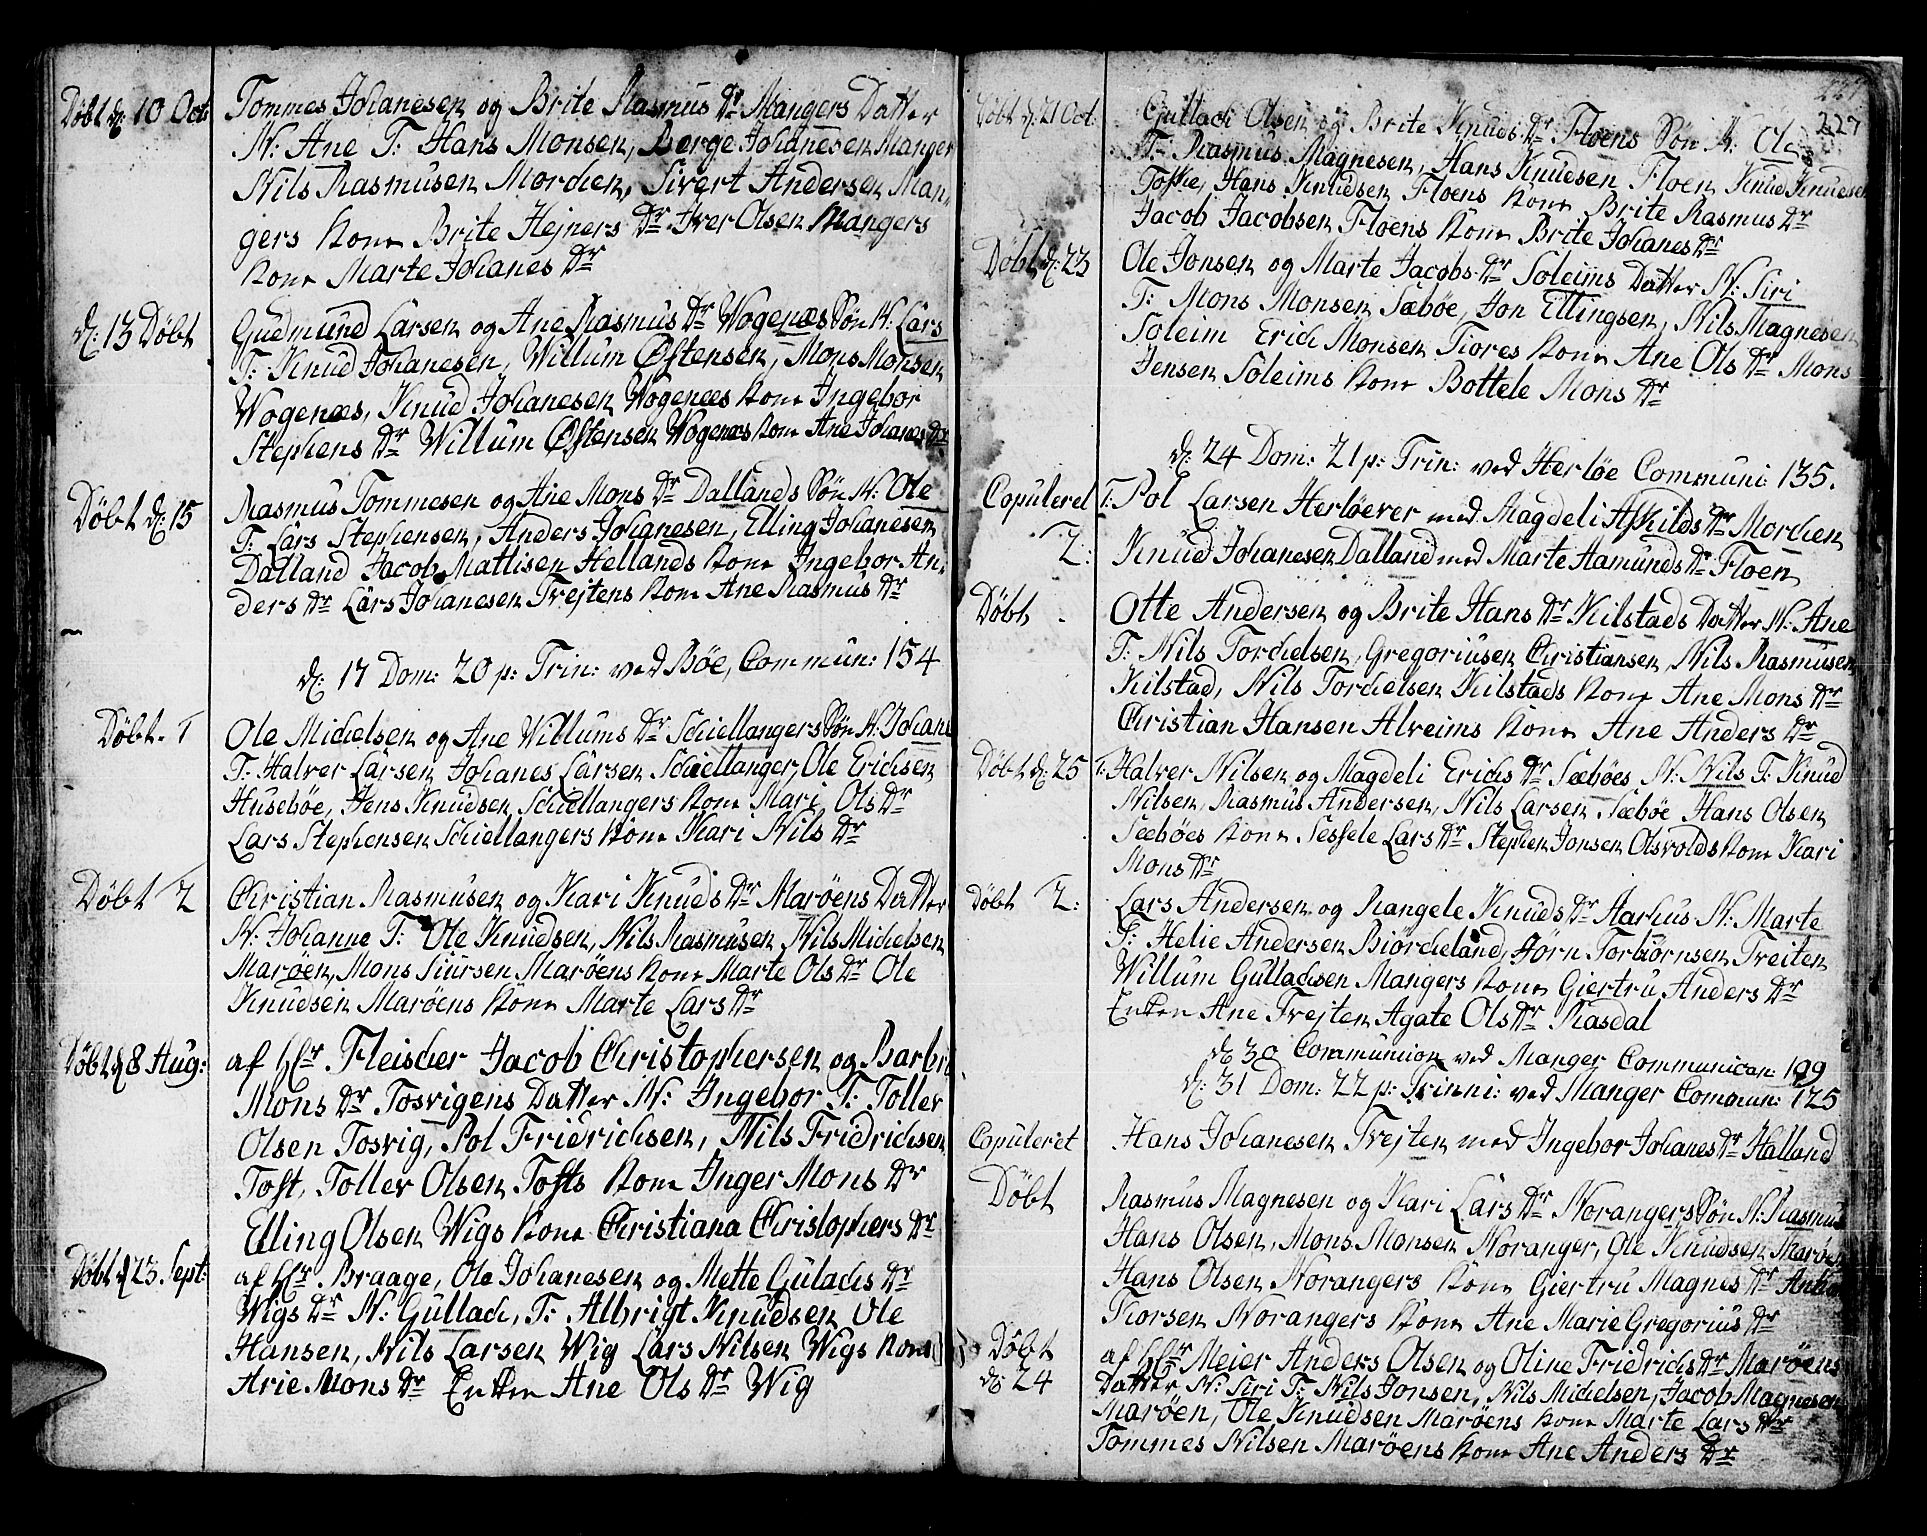 Døbt d: 10 Oct: Tommes Johanesen og Brite Rasmus Dr Mangers Datter
N: Ane T: Hans Monsen, Berge Johanesen Manger
Nils Rasmusen Mordken, Sivert Andersen Man,
gers Kone Brite Hejners Dr Iver Olsen Mangers
Kone Marte Johanes Dr
d: 13 Døbt Gudmund Larsen og Ane Rasmus Dr Wogenæs Søn N: Lars
T: Knud Johanesen, Willum Østensen, Mons Monsen
Wogenæs, Knud Johanesen Wogenæs Kone Ingebor
Stephens Dr Willum Østensen Wogenæs Kone Ane Johanes Dr
Døbt d: 15 Rasmus Tommesen og Ane Mons Dr Dallands Søn N: Ole
T: Lars Stephensen, Anders Johanesen, Elling Johanesen
Dalland Jacob Mattisen Hellands Kone Ingebor An,
ders Dr Lars Johanesen Trejtens Kone Ane Rasmus Dr
d: 17 Dom: 20 p: Trin: ved Bøe, Commun: 154
Døbt. 1 Ole Michelsen og Ane Willums Dr Schiellangers Søn N: Johans
T: Halver Larsen Johanes Larsen Schiellanger, Ole Erichsen
Husebøe, Jens Knudsen Schiellangers Kone Mari Ols Dr
Lars Stephensen Schiellangers Kone Kari Nils Dr
Døbt 2 Christian Rasmusen og Kari Knuds Dr Marøens Datter
N: Johanne T: Ole Knudsen, Nils Rasmusen Nils Michelsen
Marøen, Mons Siursen Marøens Kone Marte Ols Dr Ole
Knudsen Marøens Kone Marte Lars Dr
Døbt d 8 Aug: af Hr Fleischer Jacob Christophersen og Barbr
Mons Dr Tosvigens Datter N: Ingebor T: Toller
Olsen Tosvig, Pol Fridrichsen, Nils Fridrichsen
Toft, Toller Olsen Tofts Kone Inger Mons Dr
Elling Olsen Wigs Kone Christiana Christophers Dr
Døbt d 23. Sept: af Hr Braage, Ole Johanesen og Mette Gulachs Dr
Wigs Dr N: Gullach, T: Albrigt Knudsen Ole
Hansen, Nils Larsen Wig Lars Nilsen Wigs Kone
Arie Mons Dr Enken Ane Ols Dr Wig
227
Døbt d: 21 Oct: Gullach Olsen og Brite Knuds Dr Floens Søn N: Ole
T: Rasmus Magnesen, Hans Knudsen Floen Knud Knudsen
Toske, Hans Knudsen Floens Kone Brite Rasmus Dr
Jacob Jacobsen Floens Kone Brite Johanes Dr
Døbt d: 23 Ole Jonsen og Marte Jacobs Dr Soleims Datter N: Siri
T: Mons Monsen Sæbøe, Jon Ellingsen, Nils Magnesen
Soleim Erich Monsen Tiores Kone Ane Ols Dr Mons
Jensen Soleims Kone Bottele Mons Dr
d: 24 Dom: 21 p: Trin: ved Herløe Communi: 135.
Copuleret 1: Pol Larsen Herløever med Magdeli Askilds Dr Mordken
2: Knud Johanesen Dalland med Marte Hamunds Dr Floen
Døbt Otte Andersen og Brite Hans Dr Kilstads Datter N: Ane
T: Nils Torckelsen, Gregoriusen Christiansen, Nils Rasmusen
Kilstad, Nils Torckelsen Kilstads Kone Ane Mons Dr
Christian Hansen Alveims Kone Ane Anders Dr
Døbt d: 25 1: Halver Nilsen og Magdeli Erichs Dr Sæbøes N: Nils T: Knud
Nilsen, Rasmus Andersen, Nils Larsen Sæbøe Hans Olsen
Seebøes Kone Sessele Lars Dr Stephen Jonsen Olsvolds Kone Kari
Mons Dr
Døbt 2: Lars Andersen og Rangele Knuds Dr Aarhus N: Marte
T: Helie Andersen Biørckeland, Jørn Torbiørnsen Treiten
Willum Gulladsen Mangers Kone Giertru Anders Dr
Enken Ane Trejten Agate Ols Dr Rasdal
d: 30 Communion ved Manger Communican: 199
d: 31 Dom: 22 p: Trinni: ved Manger Commun: 125
Copuleret Hans Johanesen Trejten med Ingebor Johanes Dr Halland
Døbt Rasmus Magnesen og Kari Lars Dr Norangers Søn N: Rasmus
Hans Olsen, Mons Monsen Noranger, Ole Knudsen Marøen
Hans Olsen Norangers Kone Giertru Magnes Dr
Tiorsen Norangers Kone Ane Marie Gregorius Dr
Døbt af Hr Meier Anders Olsen og Oline Fridrichs Dr Marøens
d: 24 Datter, N: Siri T: Nils Jonsen, Nils Michelsen, Jacob Magnesen
Marøen, Ole Knudsen Marøens Kone Marte Lars Dr
Tommes Nilsen Marøens Kone Ane Anders Dr